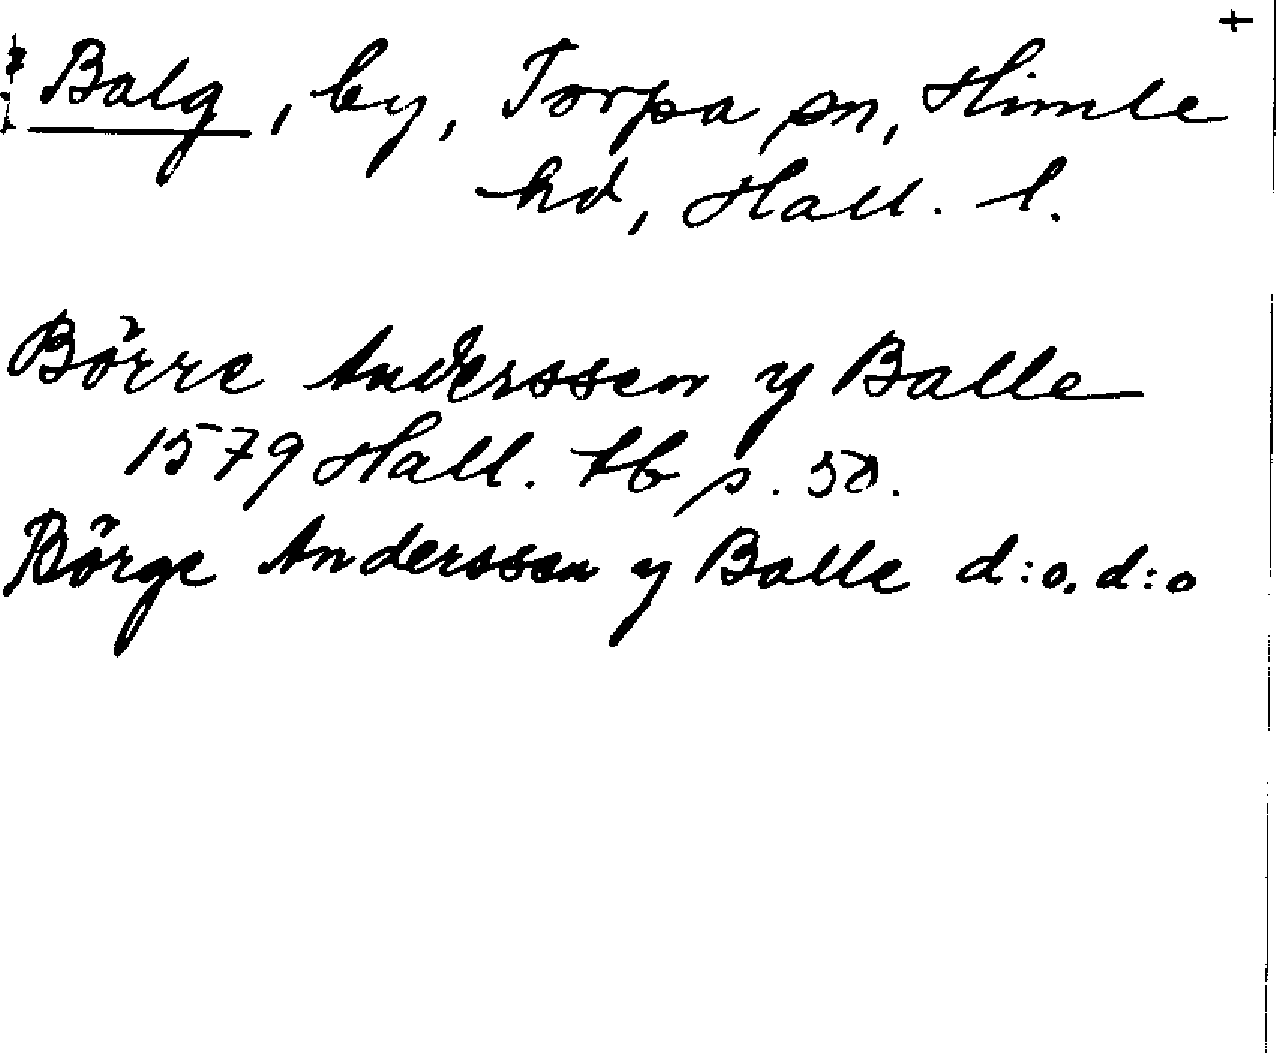 +
Balg, by, Torpa sn, Himle
hd, Hall. l.
Börre Anderssen y Balle
1579 Hall. tb s. 50.
Börge Anderssen y Balle d:o. d:o